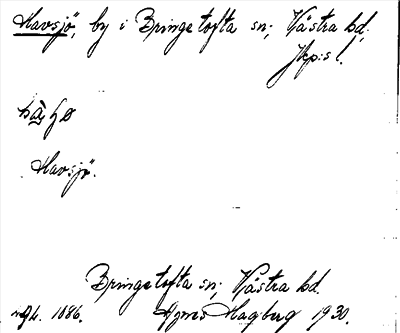 Havsjö, by i Bringetofta sn; Västra hd.
Jkp:s l.
Havsjö.
Bringetofta sn; Västra hd.
1886. Agnes Hagberg 1930.